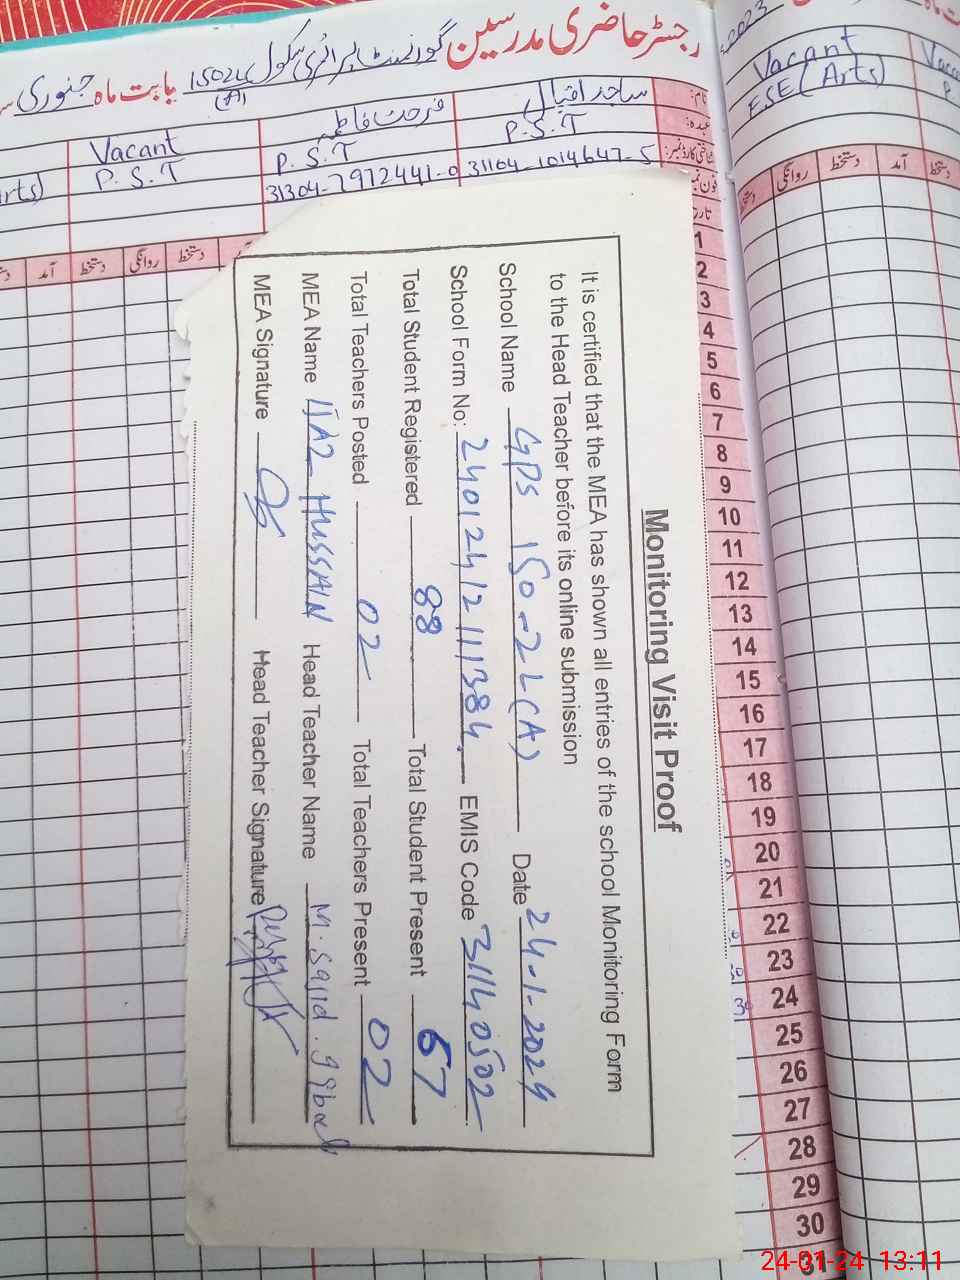 رجسٹر حاضری مدرسین گورنمنٹ پرائمری سکول 150-2L (A) بابت ماہ جنوری
نام: ساجد اقبال فرحت فاطمہ Vacant
عہدہ: P.S.T P.S.T P.S.T
شناختی کارڈ نمبر: 31104-1014647-5 31304-7972441-0
Vacant
ESE (Arts)
2023
دستخط روانگی دستخط آمد
آمد دستخط روانگی دستخط
Monitoring Visit Proof
It is certified that the MEA has shown all entries of the school Monitoring Form
to the Head Teacher before its online submission
School Name GPS 150-2L(A) Date 24-1-2024
School Form No: 24012412111384 EMIS Code 31140502
Total Student Registered 88 Total Student Present 67
Total Teachers Posted 02 Total Teachers Present 02
MEA Name IJAZ HUSSAIN Head Teacher Name M. Sajid Iqbal
MEA Signature Head Teacher Signature
1
2
3
4
5
6
7
8
9
10
11
12
13
14
15
16
17
18
19
20
21
22
23
24
25
26
27
28
29
30
31
24-01-24 13:11